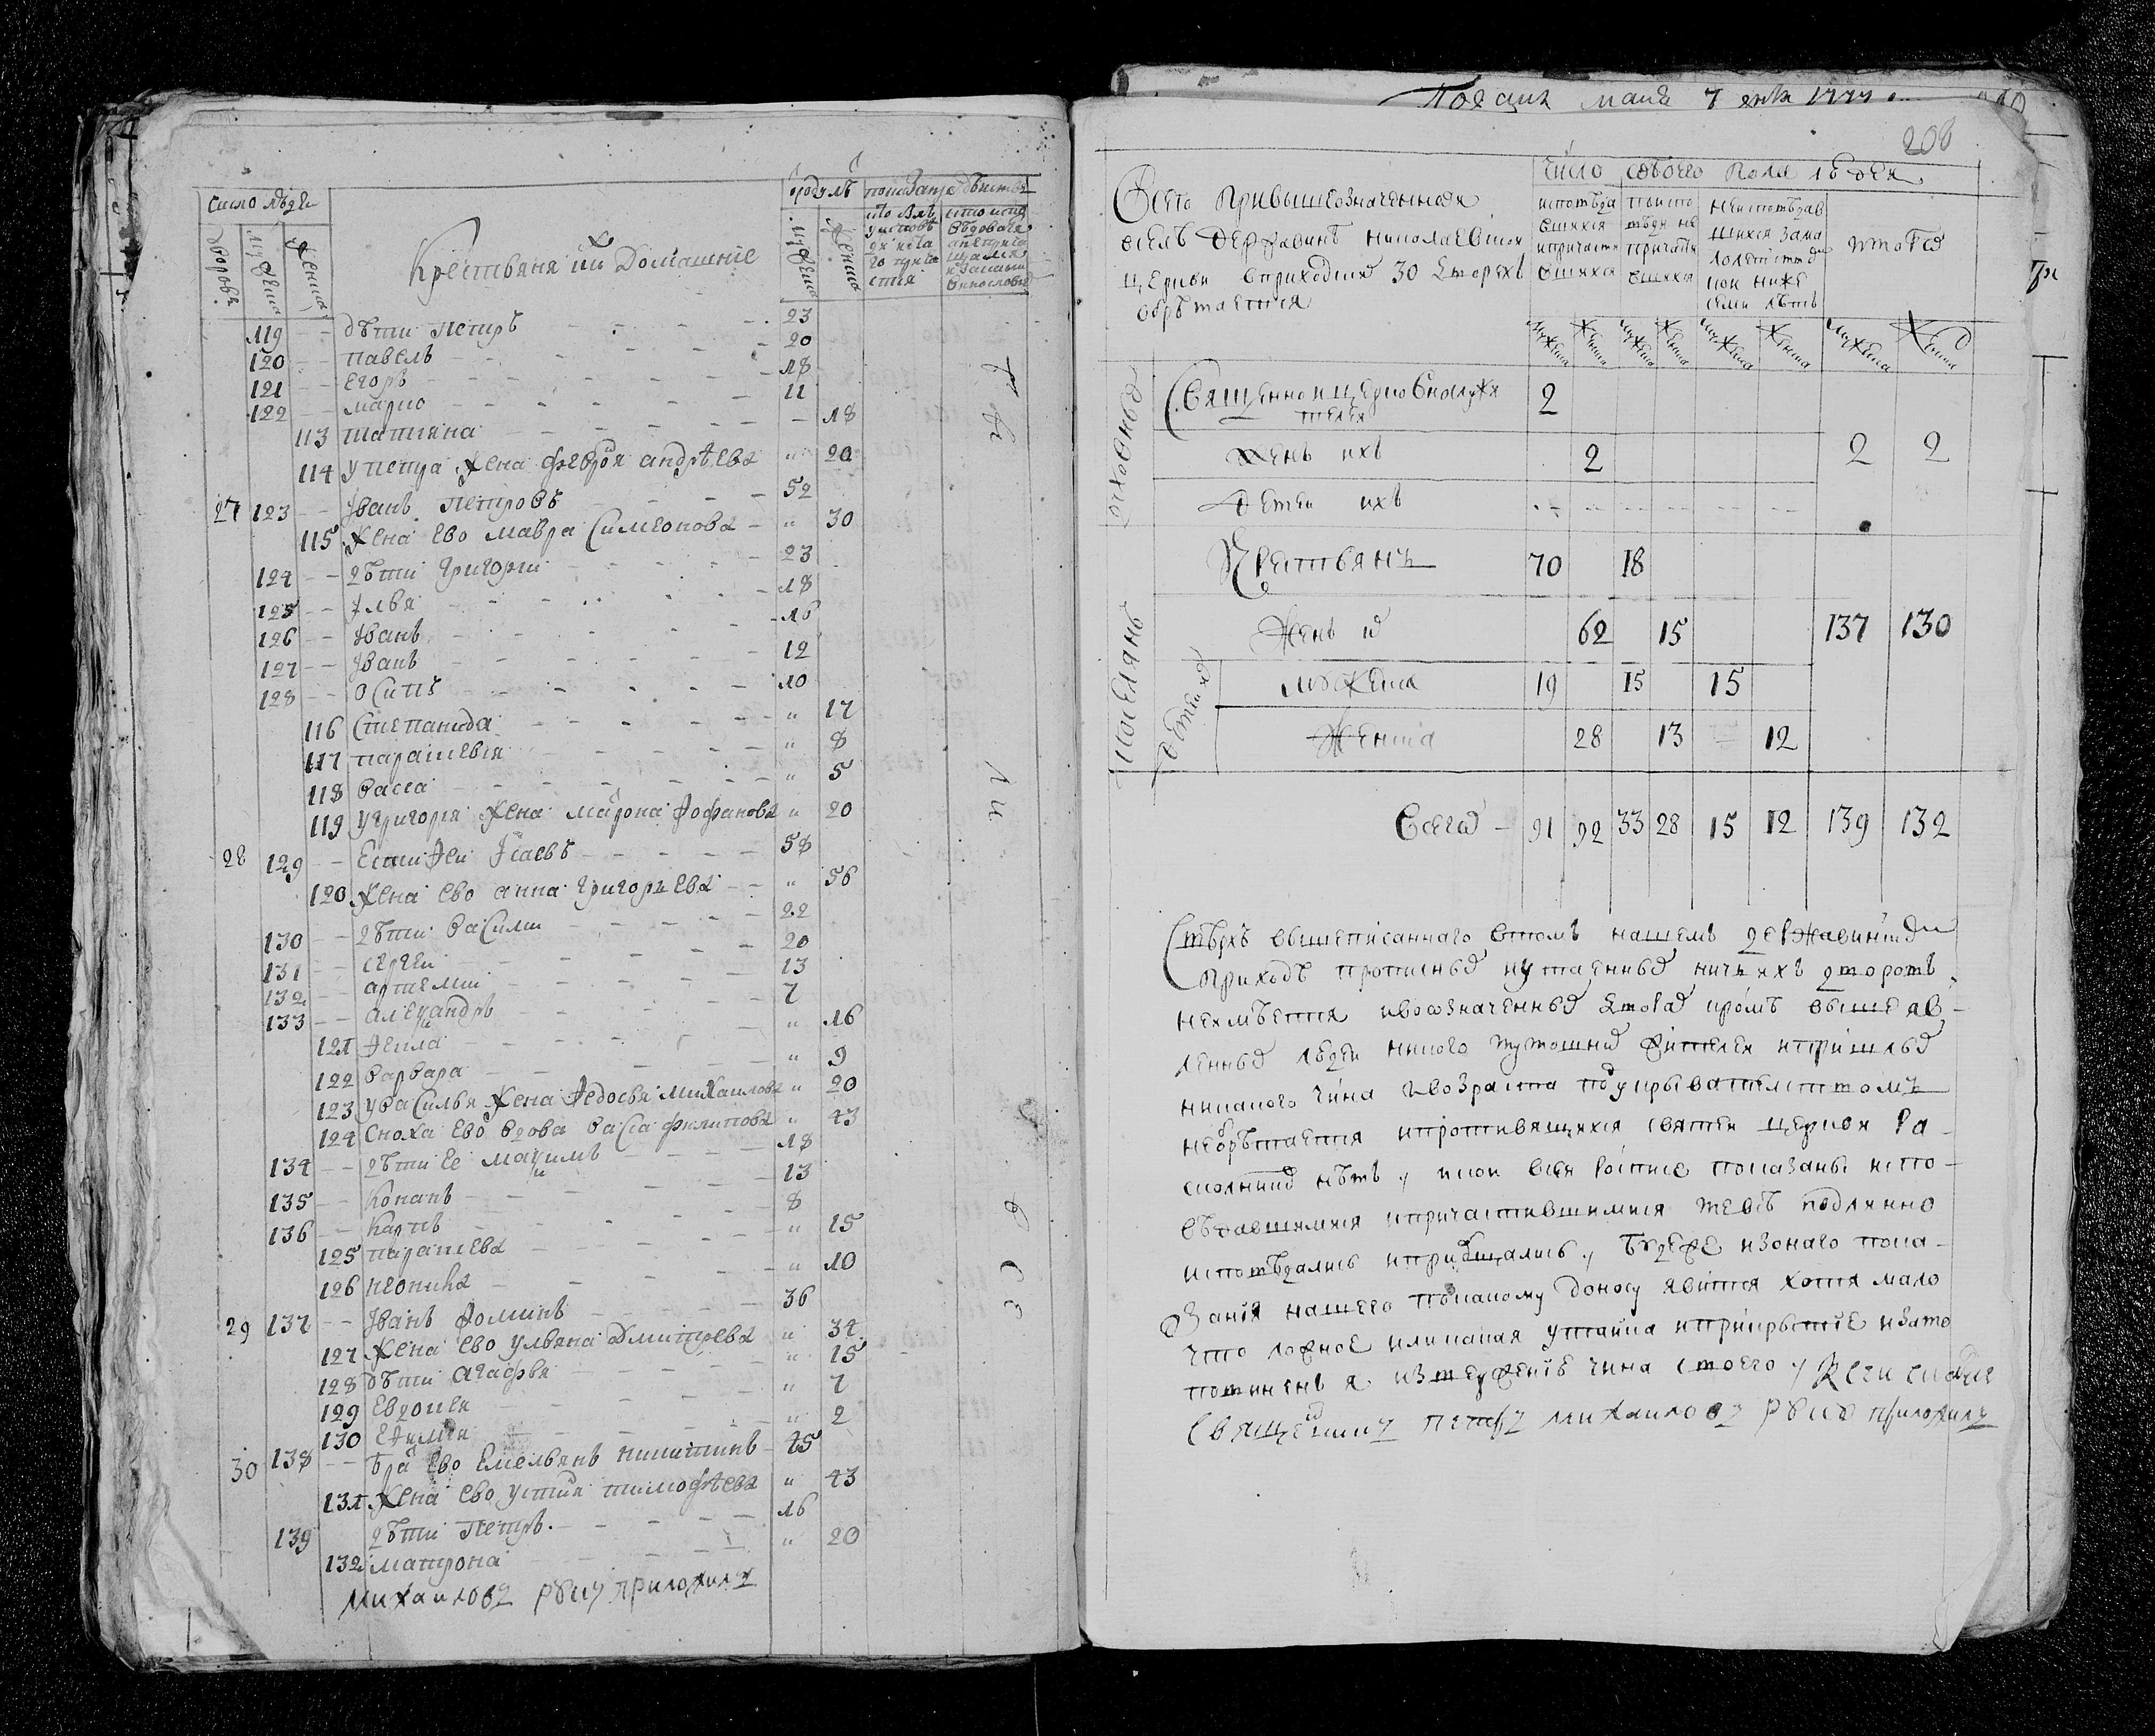 число людеи
дворовъ
мужеска
женска
Крестьяня ихъ Домашние
мужеска
женска
119 -- дѣти петръ 23
120 -- павелъ 20
121 -- егоръ 18
122 -- марко 11
113 татияна - 18
114 у петра жена феврония андрѣева " 20
27 123 -- Иванъ петровъ 52
115 жена ево мавра Симеонова " 30
124 -- дѣти григории 23
125 -- илья 18
126 -- Иванъ 16
127 -- Иванъ 12
128 -- Осипъ 10
116 Степанида " 17
117 парасковия " 8
118 васса " 5
119 у григория жена матрона " 20
28 129 -- Исаевъ 58
120 жена ево анна григорьева " 56
130 -- дѣти василии 22
131 -- сергеи 20
132 -- артемии 13
133 -- александръ 7
121 фекла " 16
122 варвара " 9
123 у василья жена федосья михаилова " 20
124 сноха ево вдова васса филипова " 43
134 -- дѣти ее максимъ 18
135 -- Конанъ 13
136 -- Карпъ 8
125 параскева " 15
126 " 10
29 137 -- Иванъ фоминъ 36
127 жена ево ульяна дмитриева " 34
128 дѣти агафья " 15
129 евдокия " 7
130 " 2
30 138 -- братъ ево емельянъ никитинъ 45
131 жена ево устиния тимофѣева " 43
139 дѣти петръ 16
132 матрона " 20
михаиловъ руку приложилъ
Подана маия 7 дня 1777
208
число обоего пола людеи
Всего при вышеозначенной
селѣ Державинѣ николаевской
церкви в приходскихъ 30 дворехъ
обрѣтается
исповѣдавшихся и причастившихся
не исповѣдавшихся за малолетствомъ ниже семи лѣтъ
итого
мужеска женска мужеска женска мужеска женска мужеска женска
духовныхъ
Священно и церковнослужителеи 2
женъ ихъ 2 2 2
детеи ихъ
поселянъ
Крестьянъ 70 18
женъ ихъ 62 15 137 130
детеи ихъ
мужеска 19 15 15
женска 28 13 12
Всего 91 92 33 28 15 12 139 132
Сверхъ вышеписанного в томъ нашемъ державинскомъ
приходѣ прописныхъ и утаенныхъ ничьихъ дворовъ
не имѣется и в означенныхъ дворахъ кромѣ вышеяв-
ленныхъ людеи никого тутошнихъ жителеи и пришлыхъ
никакого чина и возраста подъ укрывателствомъ
не обрѣтается и противящихся святеи церкви ра-
сколниковъ нѣтъ, кои в сеи росписе показаны испо-
вѣдавшимися и причастившимися те всѣ подлинно
исповѣдались и приобщались, буде же из оного пока-
зания нашего по какому доносу явится хотя мало
что ложное или какая утайка и прикрытие и за то
повиненъ я извержению чина своего, К сеи сказке
священникъ петръ михаиловъ руку приложилъ